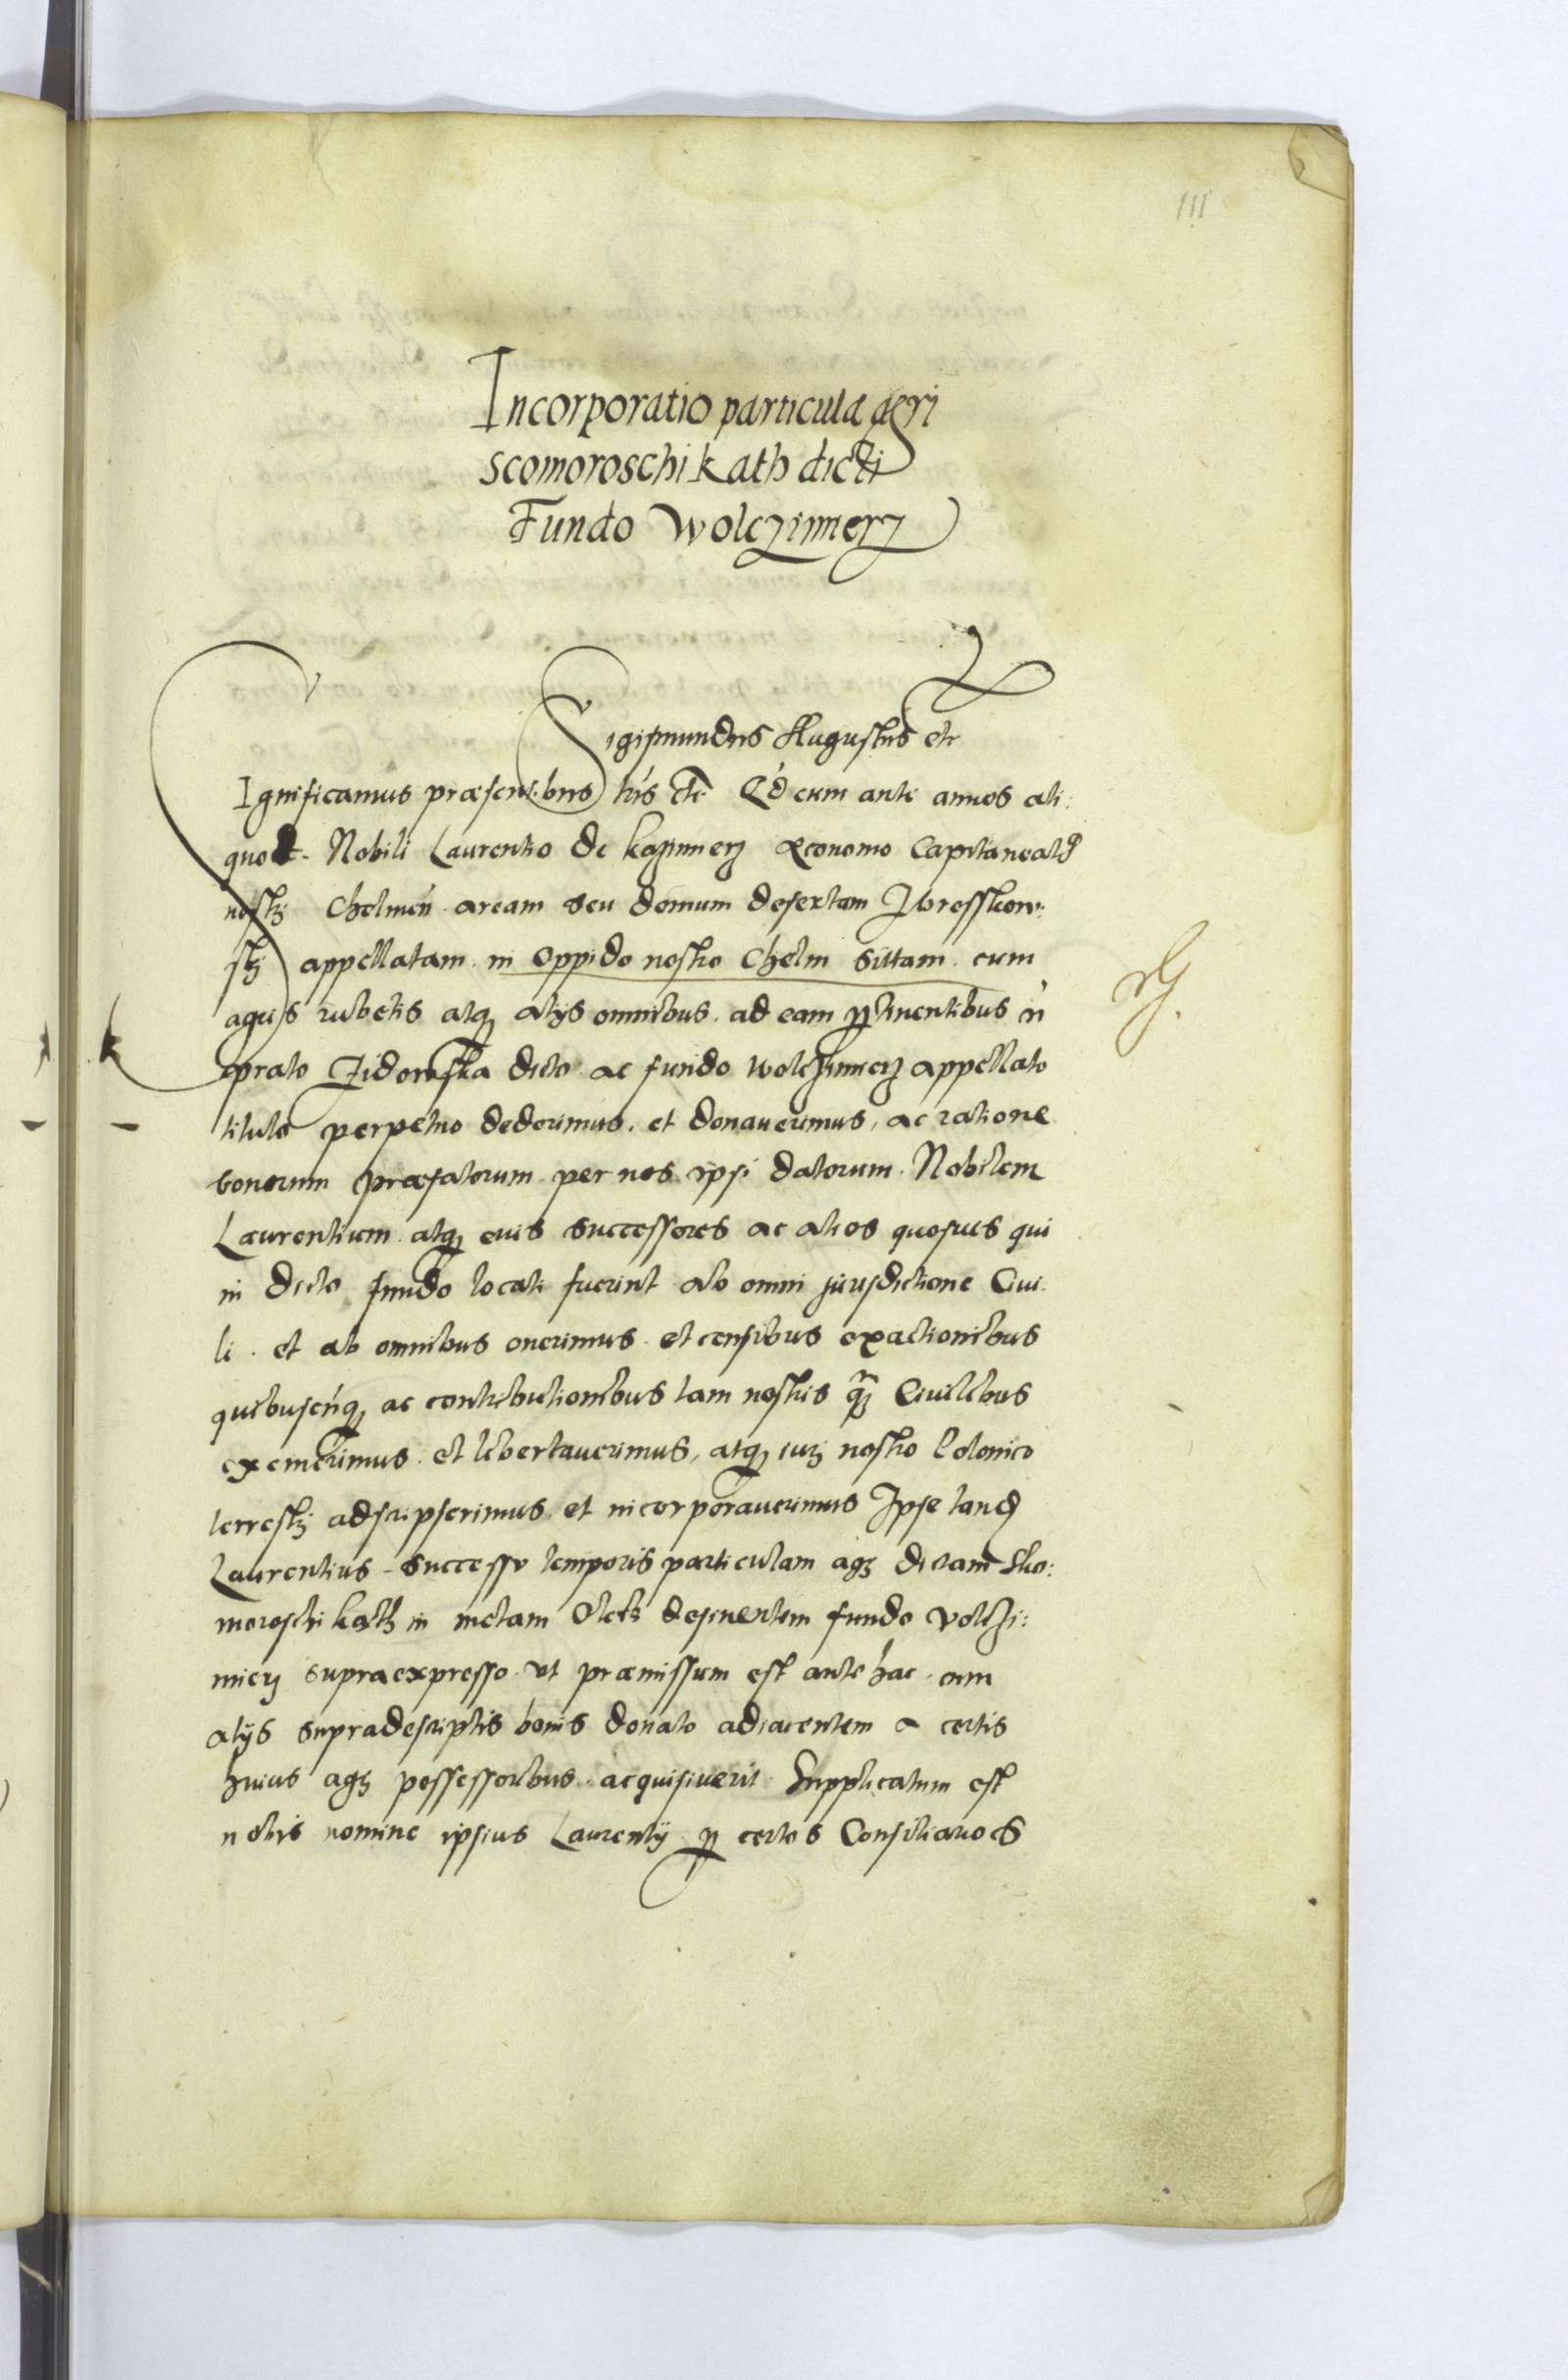 111
Incorporatio particulæ agri
Scomoroschi Kath dicti
Fundo Wolczimerz
Sigismundus Augustus etc
Significamus præsentibus lr̃is etc Qd́ cum ante annos ali:
quot Nobili Laurentio de Kazimierz œconomo Capitaneatus
nostri Chelmeń aream seu domum desertam
appellatam in Oppido nostro Chelm sittam cum
agris rubetis atq alijs omnibus ad eam ptinentibus
prato dicto ac fundo Wolczimierz appellato
titulo perpetuo dederimus et donauerimus, ac ratione
bonorum præfatorum per nos ipsi datorum Nobilem
Laurentium atq eius successores ac alios quosuis qui
in dicto fundo locati fuerint ab omni jurisdictione Ciui
li et ab omnibus onerimus et censibus exactionibus
quibuscunq ac contributionibus tam nostris q̃ Ciuilibus
exemerimus et libertauerimus, atq iuri nostro Polonico
terrestri adscripserimus et incorporauerimus Ipse
Laurentius successu temporis particulam agri dictam Sko:
moroschi kath in metam desinentem fundo Volczi:
mierz supraexpresso ut præmissum est antehac cum
alijs supradescriptis bonis donato adiacentem a certis
huius agri possessoribus acquisiuerit Supplicatum est
nobis nomine ipsius Laurentij p certos Consiliarios